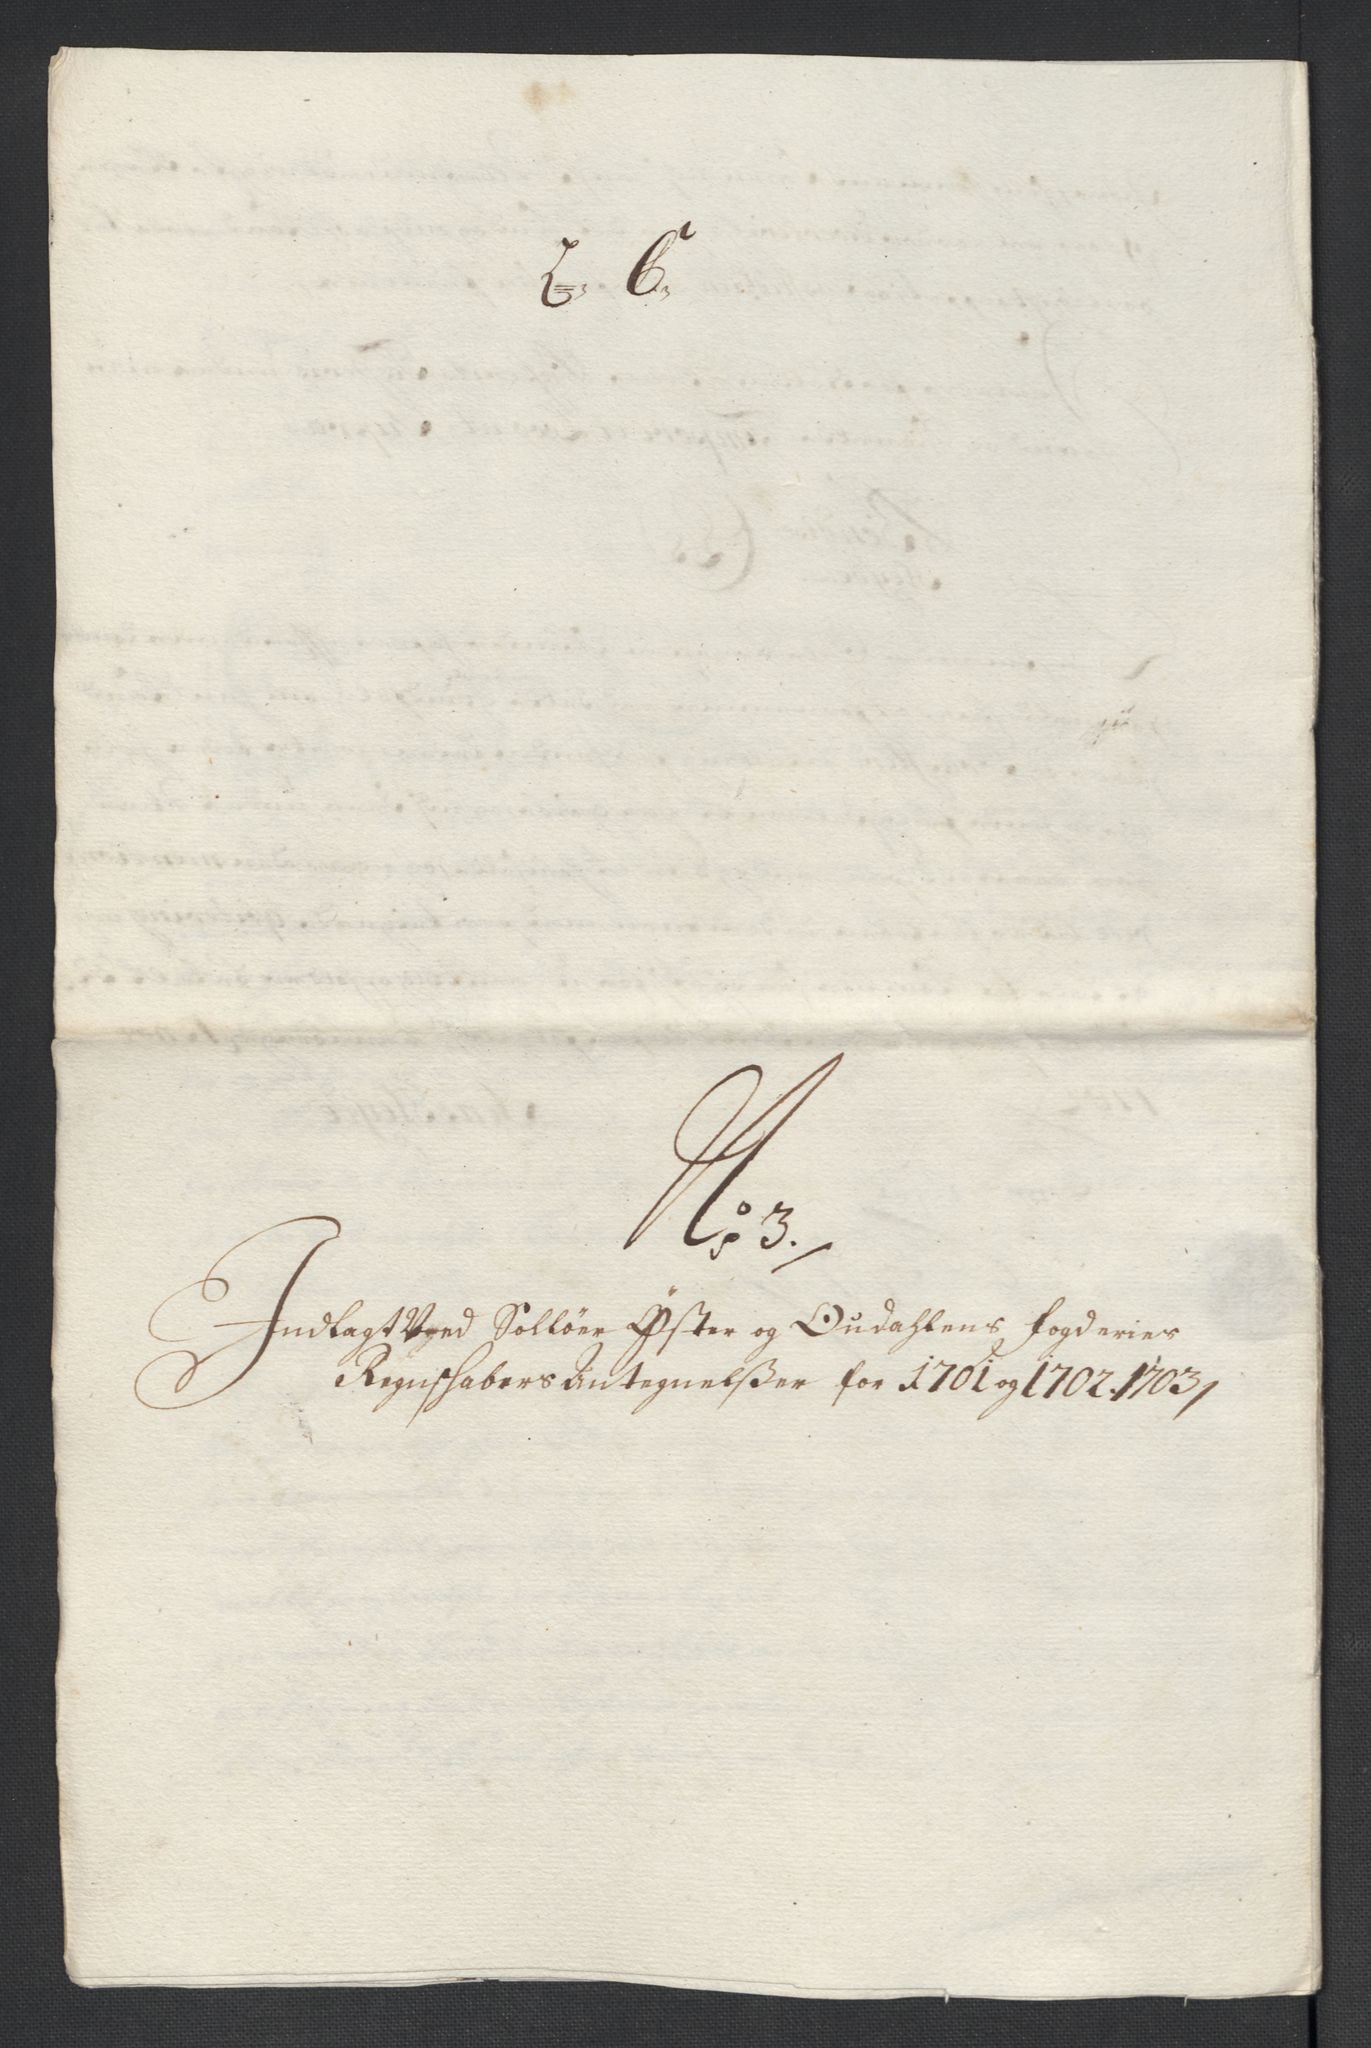 L: C:
No: 3.
Indlagt Vyed Solløer Øster og Oudahlens fogderier
Regnschabers Antegnelsßer for 1701 og 1702. 1703,